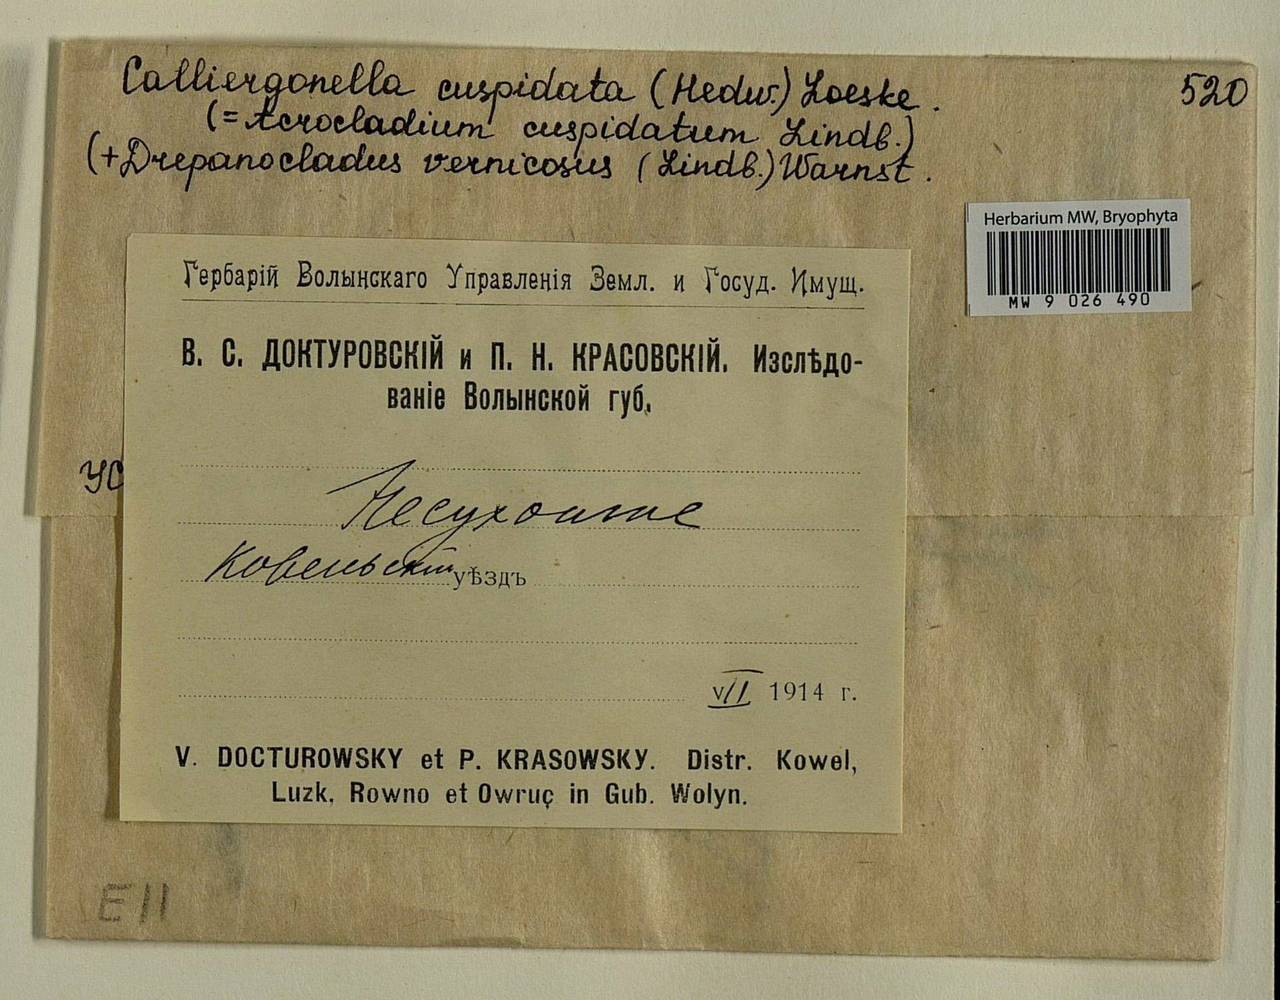 Calliergonella cuspidata (Hedw.) Loeske.
520
(=Acrocladium cuspidatum Lindb.)
(+Drepanocladus vernicosus (Lindb.) Warnst.
Herbarium MW, Bryophyta
MW 9 026 490
Гербарій Волынскаго Управленія Земл. и Госуд. Имущ.
В. С. ДОКТУРОВСКІЙ и П. Н. КРАСОВСКІЙ. Изслѣдо-
ваніе Волынской губ.
УС
Несухоиже
Ковельскій уѣздъ
VII 1914 г.
V. DOCTUROWSKY et P. KRASOWSKY. Distr. Kowel,
Luzk, Rowno et Owruç in Gub. Wolyn.
E11